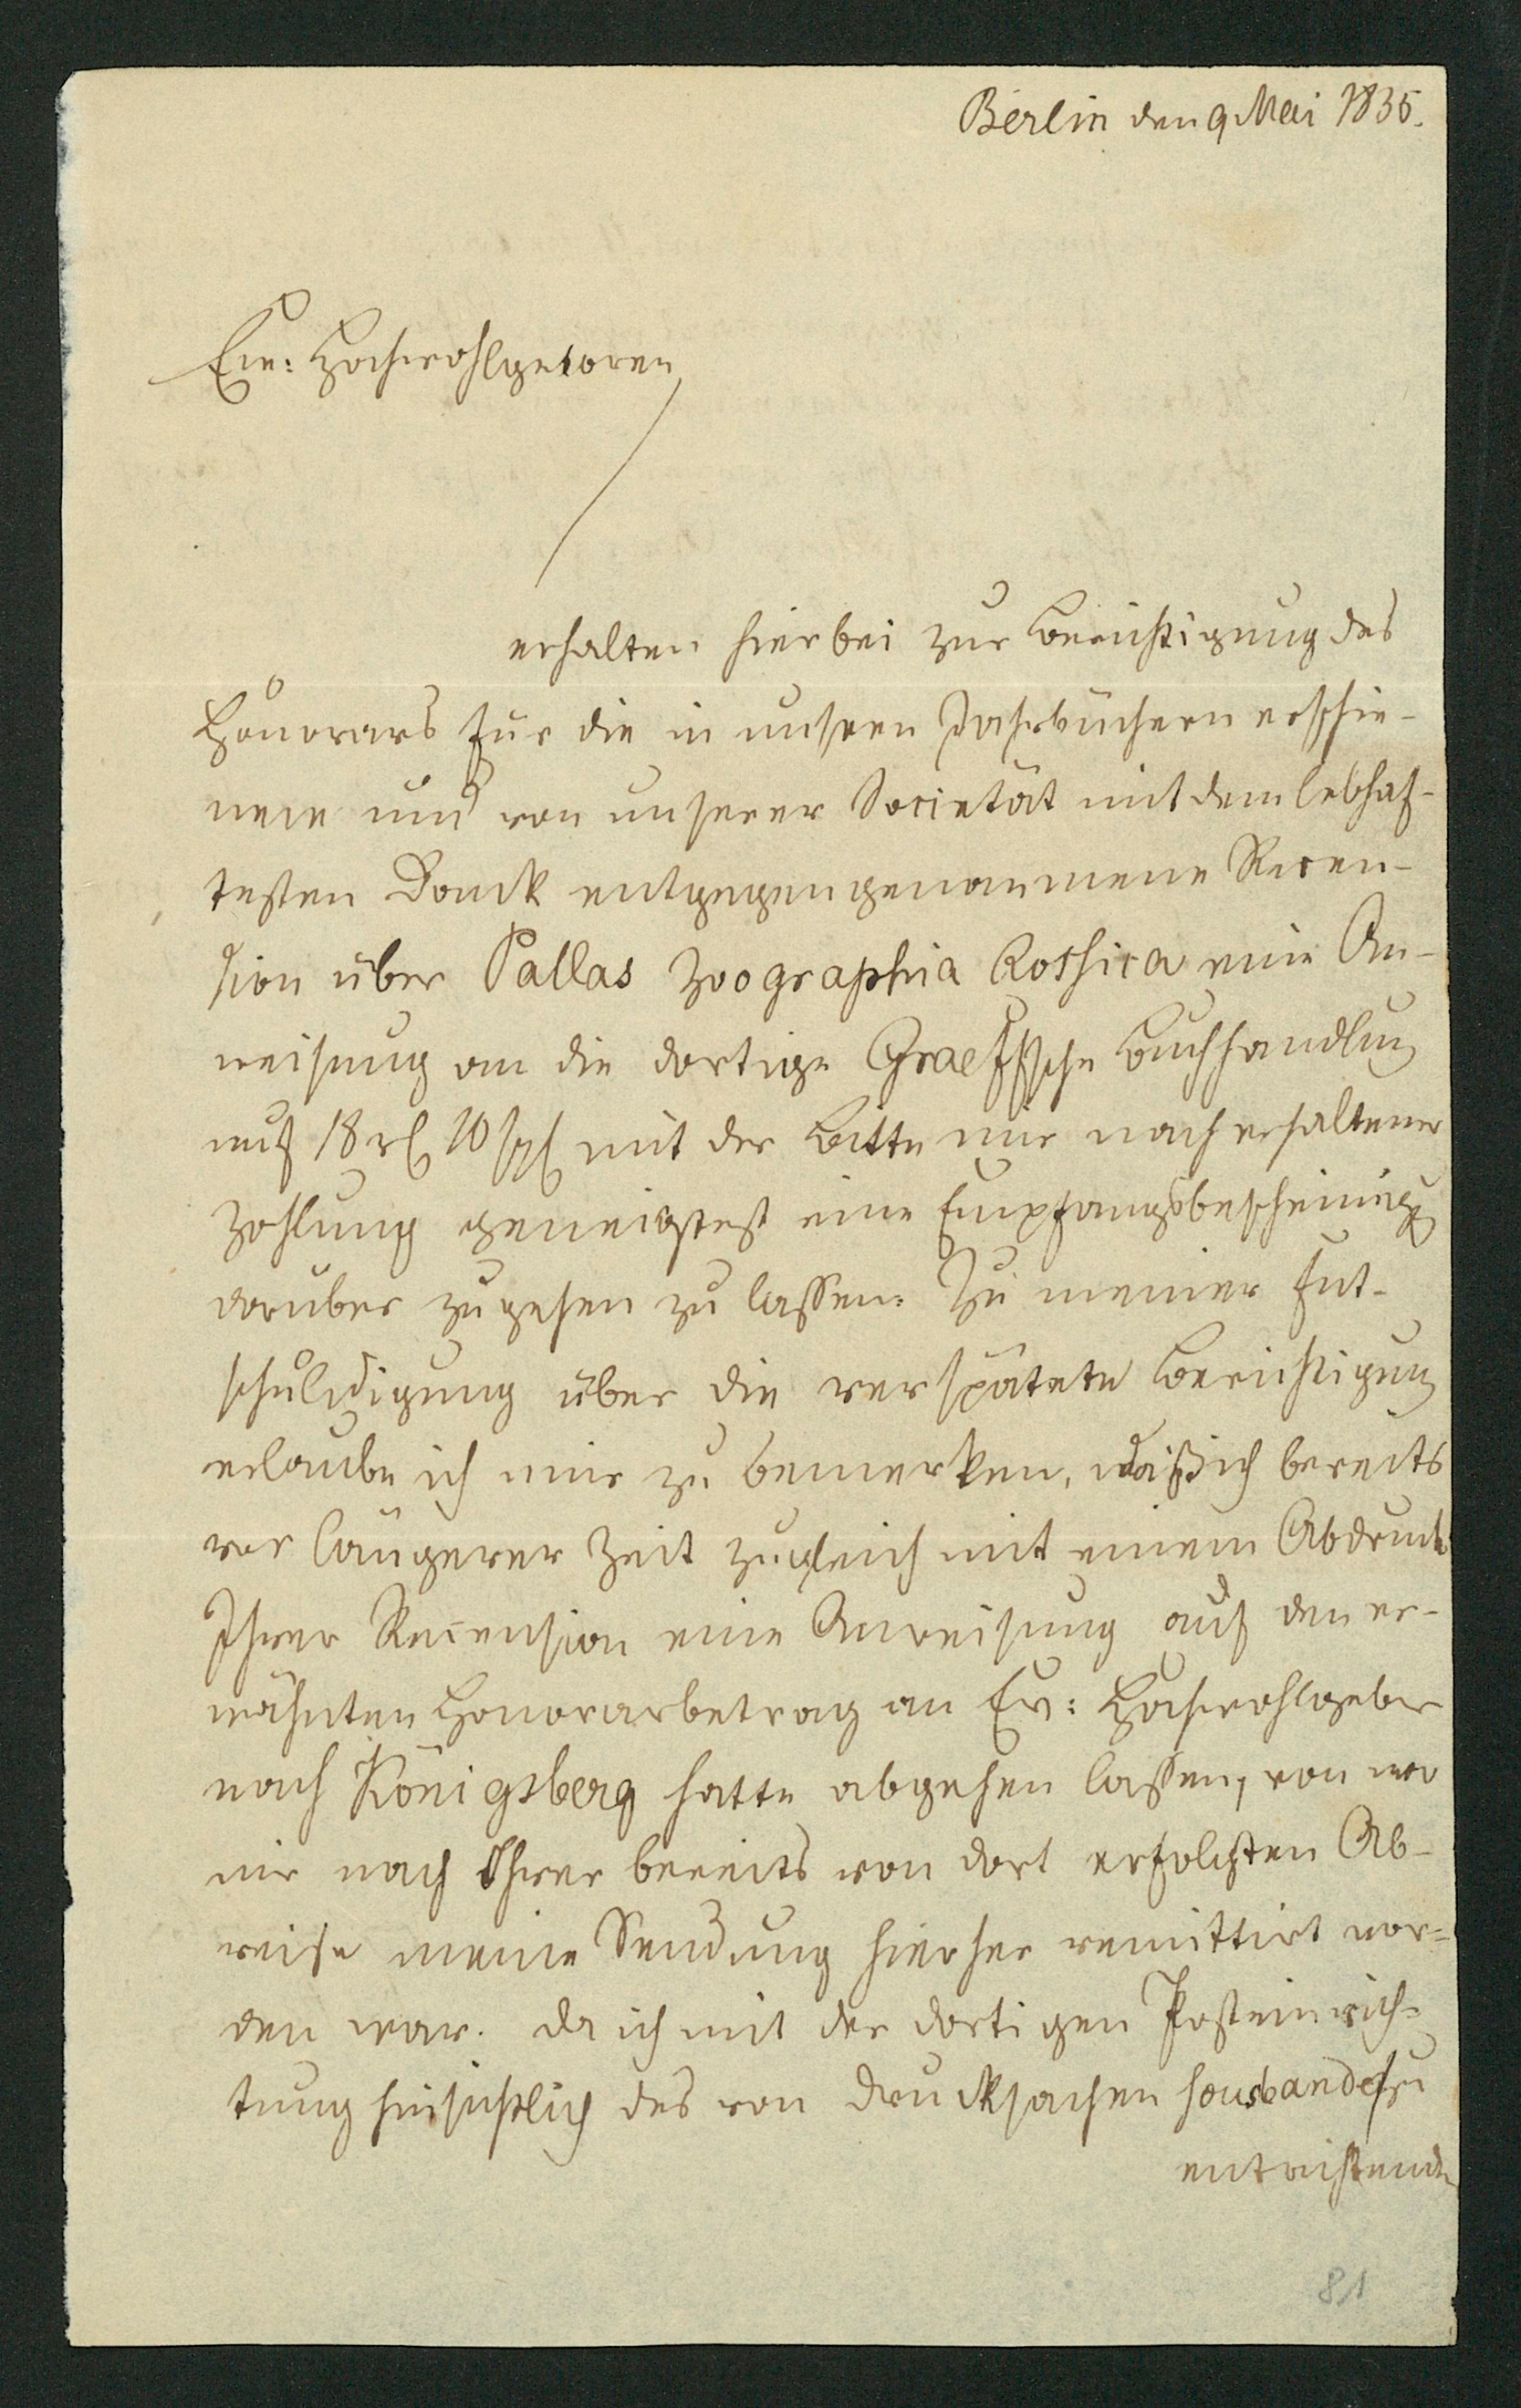 Berlin den 9 Mai 1835.
Ew: Hochwohlgeboren
erhalten hierbei zur Berichtigung des
Honorars für die in unsren Jahrbüchern erschie-
nene und von unserer Societät mit dem lebhaf-
testen Danck entgegengenommene Recen-
sion über Pallas Zoographia Rossica eine An-
weisung an die dortige Graeffsche Buchhandlung
auf 18 rl 10 sgl mit der Bitte mir nach erhaltener
Zahlung geneigtest eine Empfangsbescheinigg
darüber zugehen zu lassen. Zu meiner Ent-
schuldigung über die verspätete Berichtigung
erlaube ich mir zu bemerken, daß ich bereits
vor längerer Zeit zugleich mit einem Abdruck
Ihrer Recension eine Anweisung auf den er-
wähnten Honorarbetrag an Ew: Hochwohlgebor
nach Königsberg hatte abgehen lassen, von wo
mir nach Ihrer bereits von dort erfolgten Ab-
reise meine Sendung hierher remittirt wor-
den war. Da ich mit der dortigen Posteinrich-
tung hinsichtlich des von Drucksachen sous bande zu
entrichtenden
81